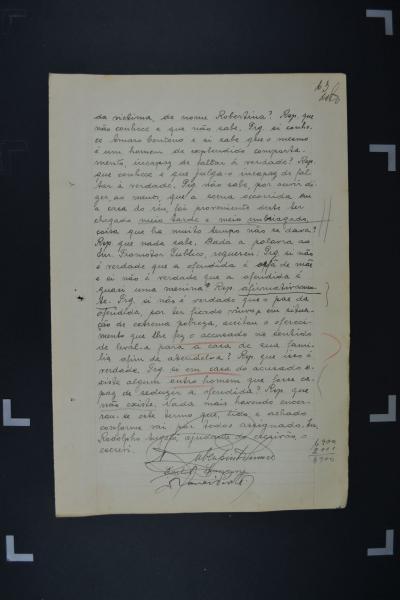 63
da victima, de nome Robertina? Resp. que
não conhece e que não sabe. Prg. si conhe-
ce Amaro Centeno e si sabe que o mesmo
é um homem de explendido comporta-
mento, incapaz de faltar á verdade? Resp.
que conhece e que julga-o incapaz de fal-
tar á verdade. Prg. não sabe, por ouvir di-
zer ao menos, que a scena occorrida em
a casa do réu foi proveniente deste ter
chegado meio tarde e meio embriagado,
coisa que ha muito tempo não se dava?
Resp. que nada sabe. Dada a palavra ao
Snr. Promotor Publico, requereu: Prg. si não
é verdade que a ofendida é orfã de mãe
e si não é verdade que a ofendida é
quasi uma menina? Resp. afirmativamen-
te. Prg. si não é verdade que o pae da
ofendida, por ter ficado viuvo e em situa-
ção de extrema pobreza, aceitou o ofereci-
mento que lhe fez o accusado no sentido
de leval-a para a casa de sua fami-
lia afim de attendel-a? Resp. que isso é
verdade. Prg. si em casa do accusado e-
xiste algum outro homem que fosse ca-
paz de seduzir a ofendida? Resp. que
não existe. Nada mais havendo encer-
rou-se este termo que, lido e achado
conforme vai por todos assignado. Eu,
Rodolpho, ajudante do escrivão, o
escrevi.